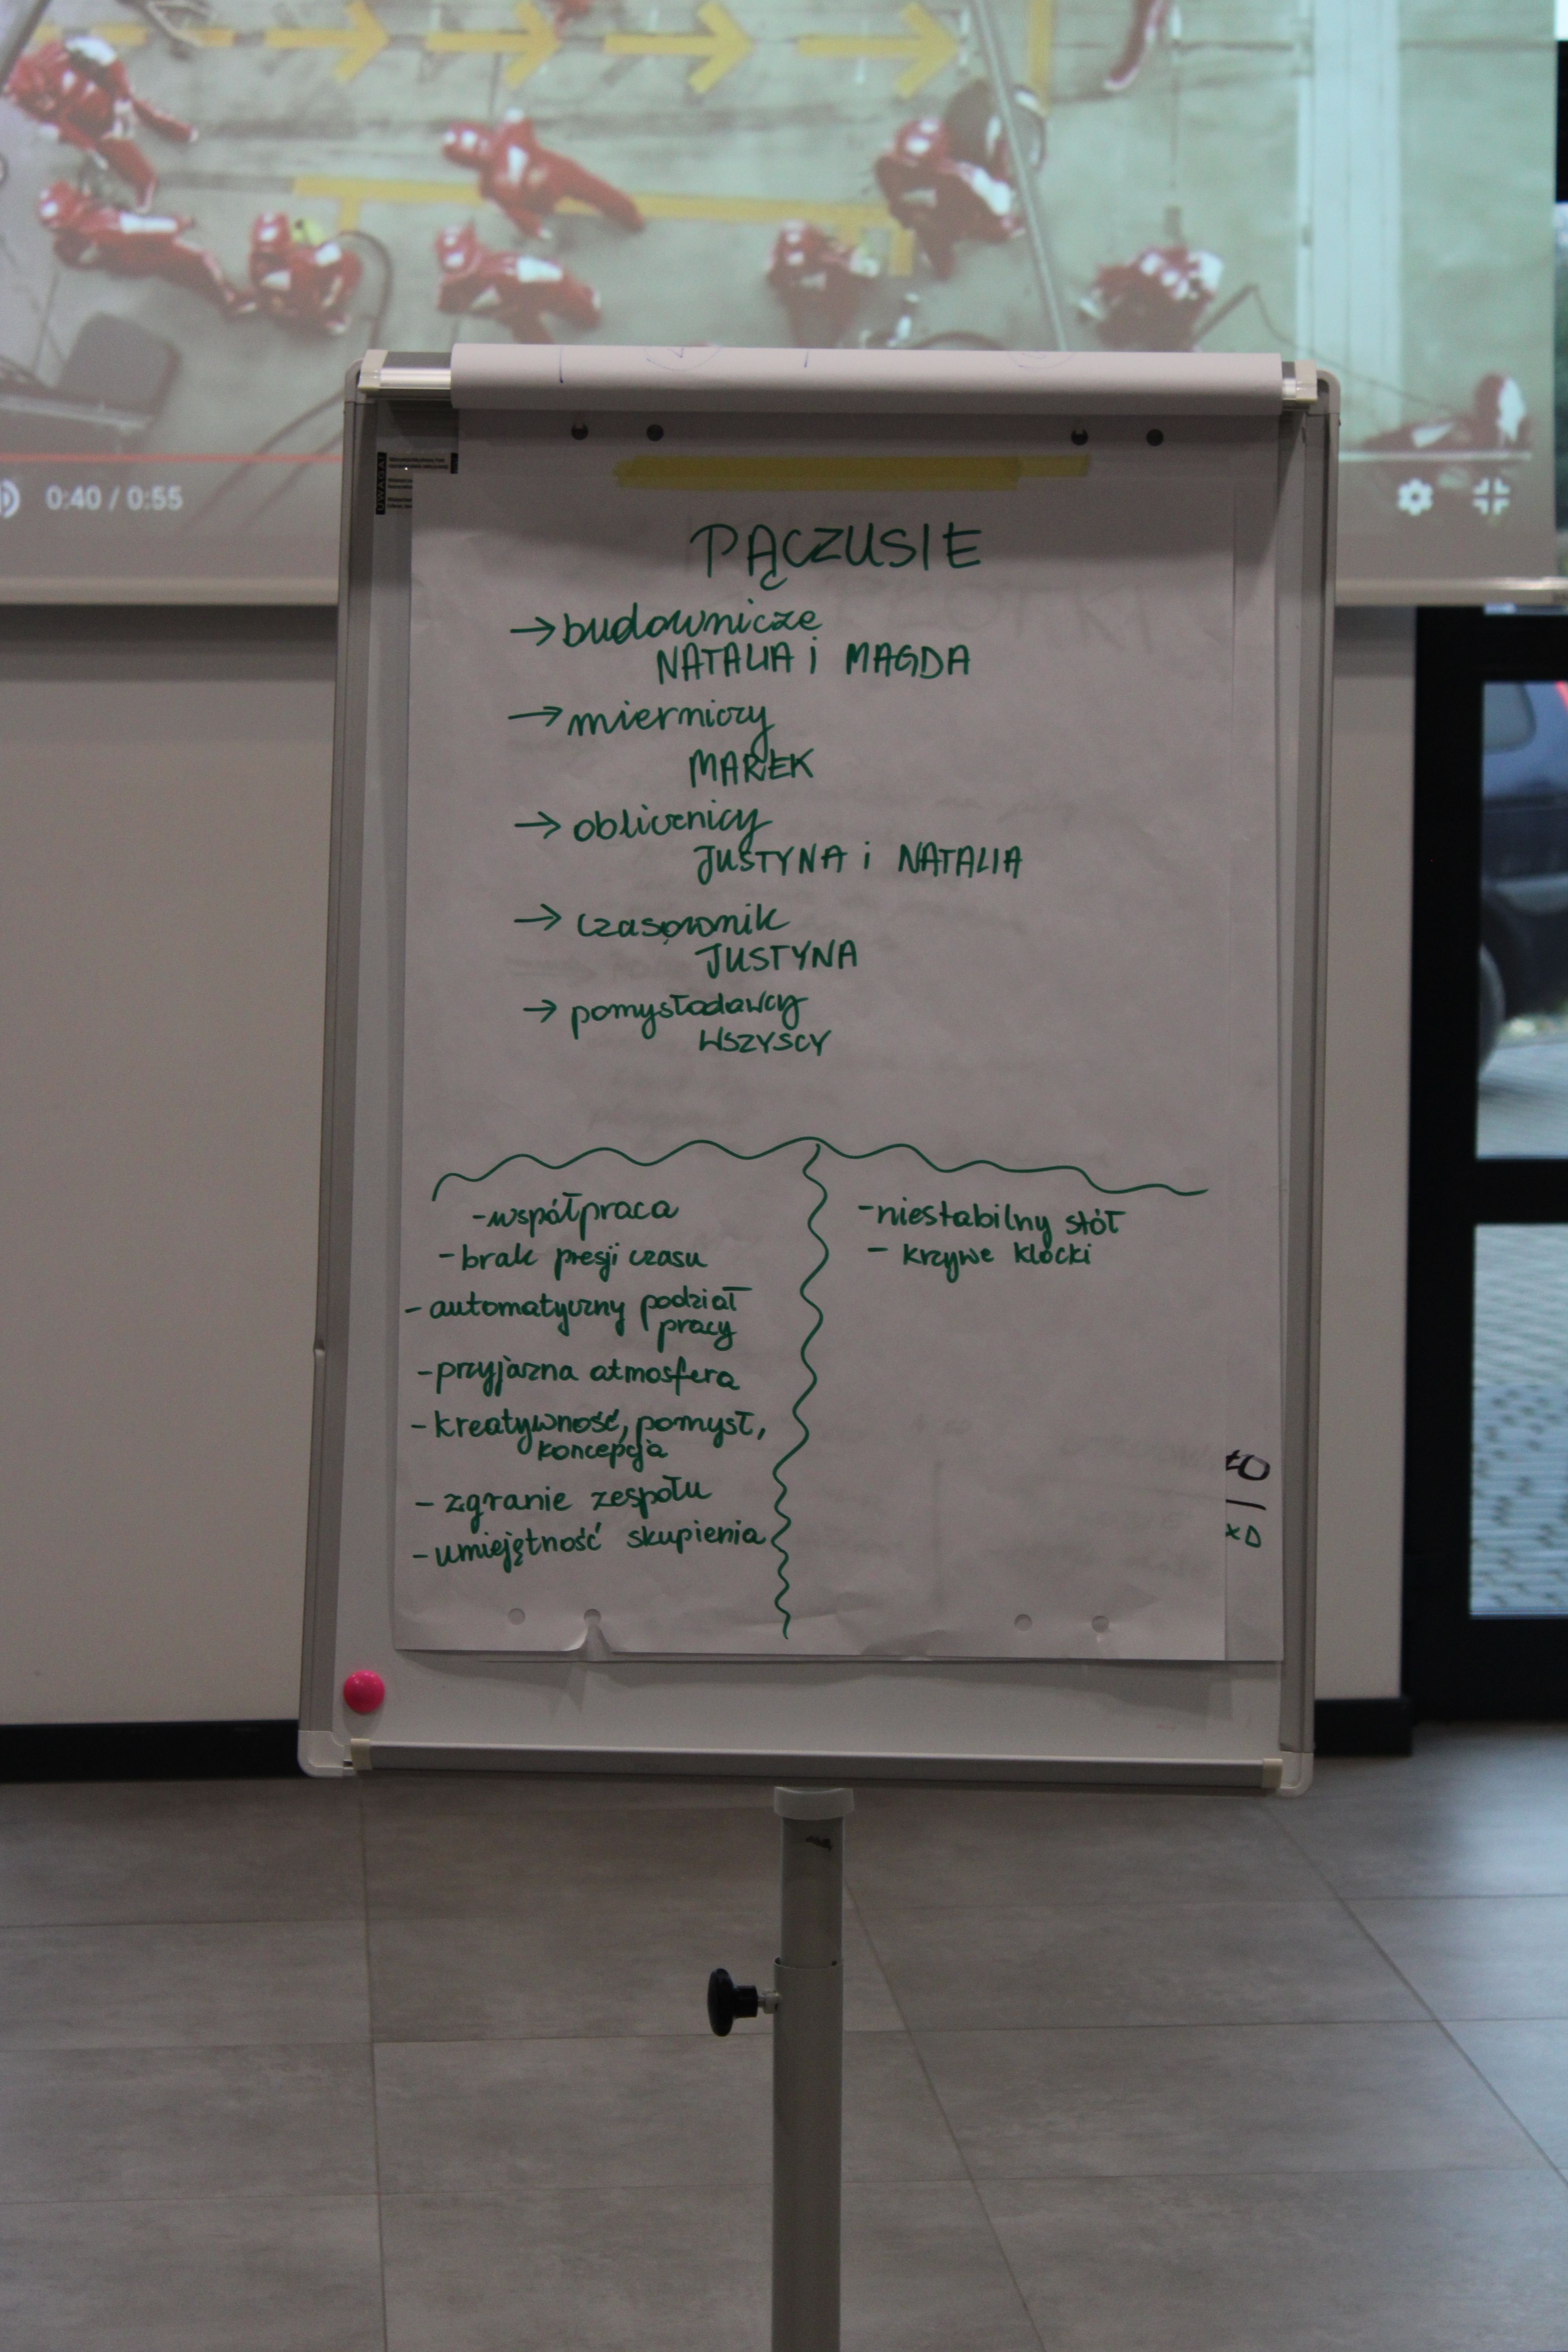 0:40 / 0:55
UWAGA!
PĄCZUSIE
→ budownicze
NATALIA i MAGDA
→ mierniczy
MAREK
→ oblicznicy
JUSTYNA i NATALIA
→
JUSTYNA
→ pomysłodawcy
WSZYSCY
- współpraca
- brak presji czasu
- automatyczny podział
pracy
- przyjazna atmosfera
- kreatywność, pomysł,
koncepcja
- zgranie zespołu
- umiejętność skupienia
- niestabilny stół
- krzywe klocki
xD